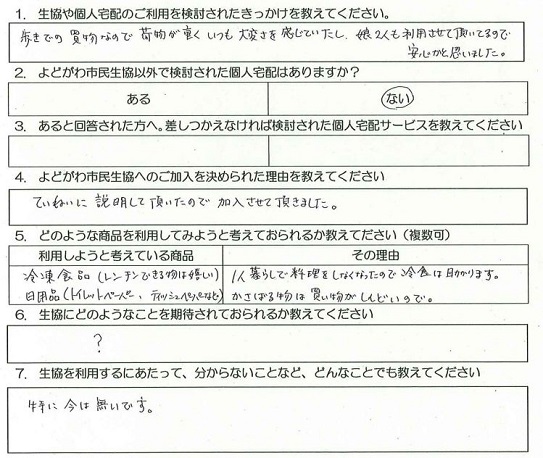 1. 生協や個人宅配のご利用を検討されたきっかけを教えてください。
歩きでの買物なので荷物が重くいつも大変さを感じていたし、娘2人も利用させて頂いてるので
安心かと思いました。
2. よどがわ市民生協以外で検討された個人宅配はありますか？
ある ない
3. あると回答された方へ。差しつかえなければ検討された個人宅配サービスを教えてください
4. よどがわ市民生協へのご加入を決められた理由を教えてください
ていねいに説明して頂いたので加入させて頂きました。
5. どのような商品を利用してみようと考えておられるか教えてください（複数可）
利用しようと考えている商品 その理由
冷凍食品（レンチンできる物は嬉しい） 1人暮らしで料理をしなくなったので冷食は助かります。
日用品（トイレットペーパー、ティッシュペーパーなど） かさばる物は買い物がしんどいので。
6. 生協にどのようなことを期待されておられるか教えてください
？
7. 生協を利用するにあたって、分からないことなど、どんなことでも教えてください
特に今は無いです。